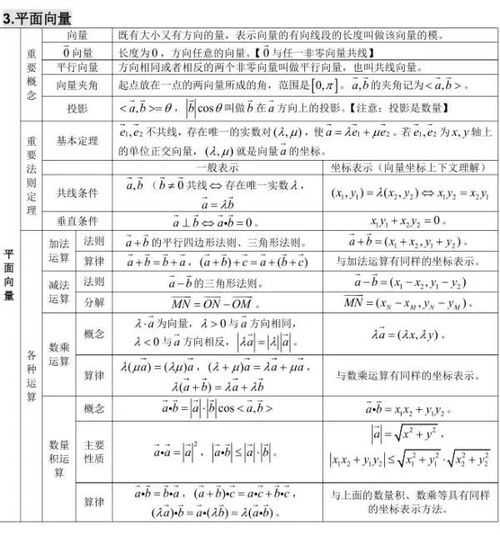 3.平面向量
平面向量
重要概念
向量 既有大小又有方向的量，表示向量的有向线段的长度叫做该向量的模。
0⃗ 向量 长度为 0，方向任意的向量。【0⃗ 与任一非零向量共线】
平行向量 方向相同或者相反的两个非零向量叫做平行向量，也叫共线向量。
向量夹角 起点放在一点的两向量所成的角，范围是[0,π]。a⃗,b⃗ 的夹角记为<a⃗,b⃗>。
投影 <a⃗,b⃗>=θ，|b⃗|cosθ 叫做 b⃗ 在 a⃗ 方向上的投影。【注意：投影是数量】
重要法则定理
基本定理 e⃗₁,e⃗₂ 不共线，存在唯一的实数对(λ,μ)，使 a⃗=λe⃗₁+μe⃗₂。若 e⃗₁,e⃗₂ 为 x,y 轴上
的单位正交向量，(λ,μ)就是向量 a⃗ 的坐标。
一般表示 坐标表示（向量坐标上下文理解）
共线条件 a⃗,b⃗（b⃗≠0⃗ 共线⇔存在唯一实数λ，
a⃗=λb⃗
(x₁,y₁)=λ(x₂,y₂)⇔x₁y₂=x₂y₁
垂直条件 a⃗⊥b⃗⇔a⃗•b⃗=0。 x₁y₁+x₂y₂=0。
各种运算
加法运算
法则 a⃗+b⃗ 的平行四边形法则、三角形法则。 a⃗+b⃗=(x₁+x₂,y₁+y₂)。
算律 a⃗+b⃗=b⃗+a⃗，(a⃗+b⃗)+c⃗=a⃗+(b⃗+c⃗) 与加法运算有同样的坐标表示。
减法运算
法则 a⃗−b⃗ 的三角形法则。 a⃗−b⃗=(x₁−x₂,y₁−y₂)
分解 MN⃗=ON⃗−OM⃗。 MN⃗=(x_N−x_M,y_N−y_M)。
数乘运算
概念 λ·a⃗ 为向量，λ>0 与 a⃗ 方向相同，
λ<0 与 a⃗ 方向相反，|λa⃗|=|λ||a⃗|。
λa⃗=(λx,λy)。
算律 λ(μa⃗)=(λμ)a⃗，(λ+μ)a⃗=λa⃗+μa⃗，
λ(a⃗+b⃗)=λa⃗+λb⃗
与数乘运算有同样的坐标表示。
数量积运算
概念 a⃗•b⃗=|a⃗|·|b⃗|cos<a⃗,b⃗> a⃗•b⃗=x₁x₂+y₁y₂。
主要性质 a⃗•a⃗=|a⃗|²，|a⃗•b⃗|≤|a⃗|·|b⃗|。
|a⃗|=√(x²+y²)，
|x₁x₂+y₁y₂|≤√(x₁²+y₁²)·√(x₂²+y₂²)
算律 a⃗•b⃗=b⃗•a⃗，(a⃗+b⃗)•c⃗=a⃗•c⃗+b⃗•c⃗，
(λa⃗)•b⃗=a⃗•(λb⃗)=λ(a⃗•b⃗)。
与上面的数量积、数乘等具有同样
的坐标表示方法。